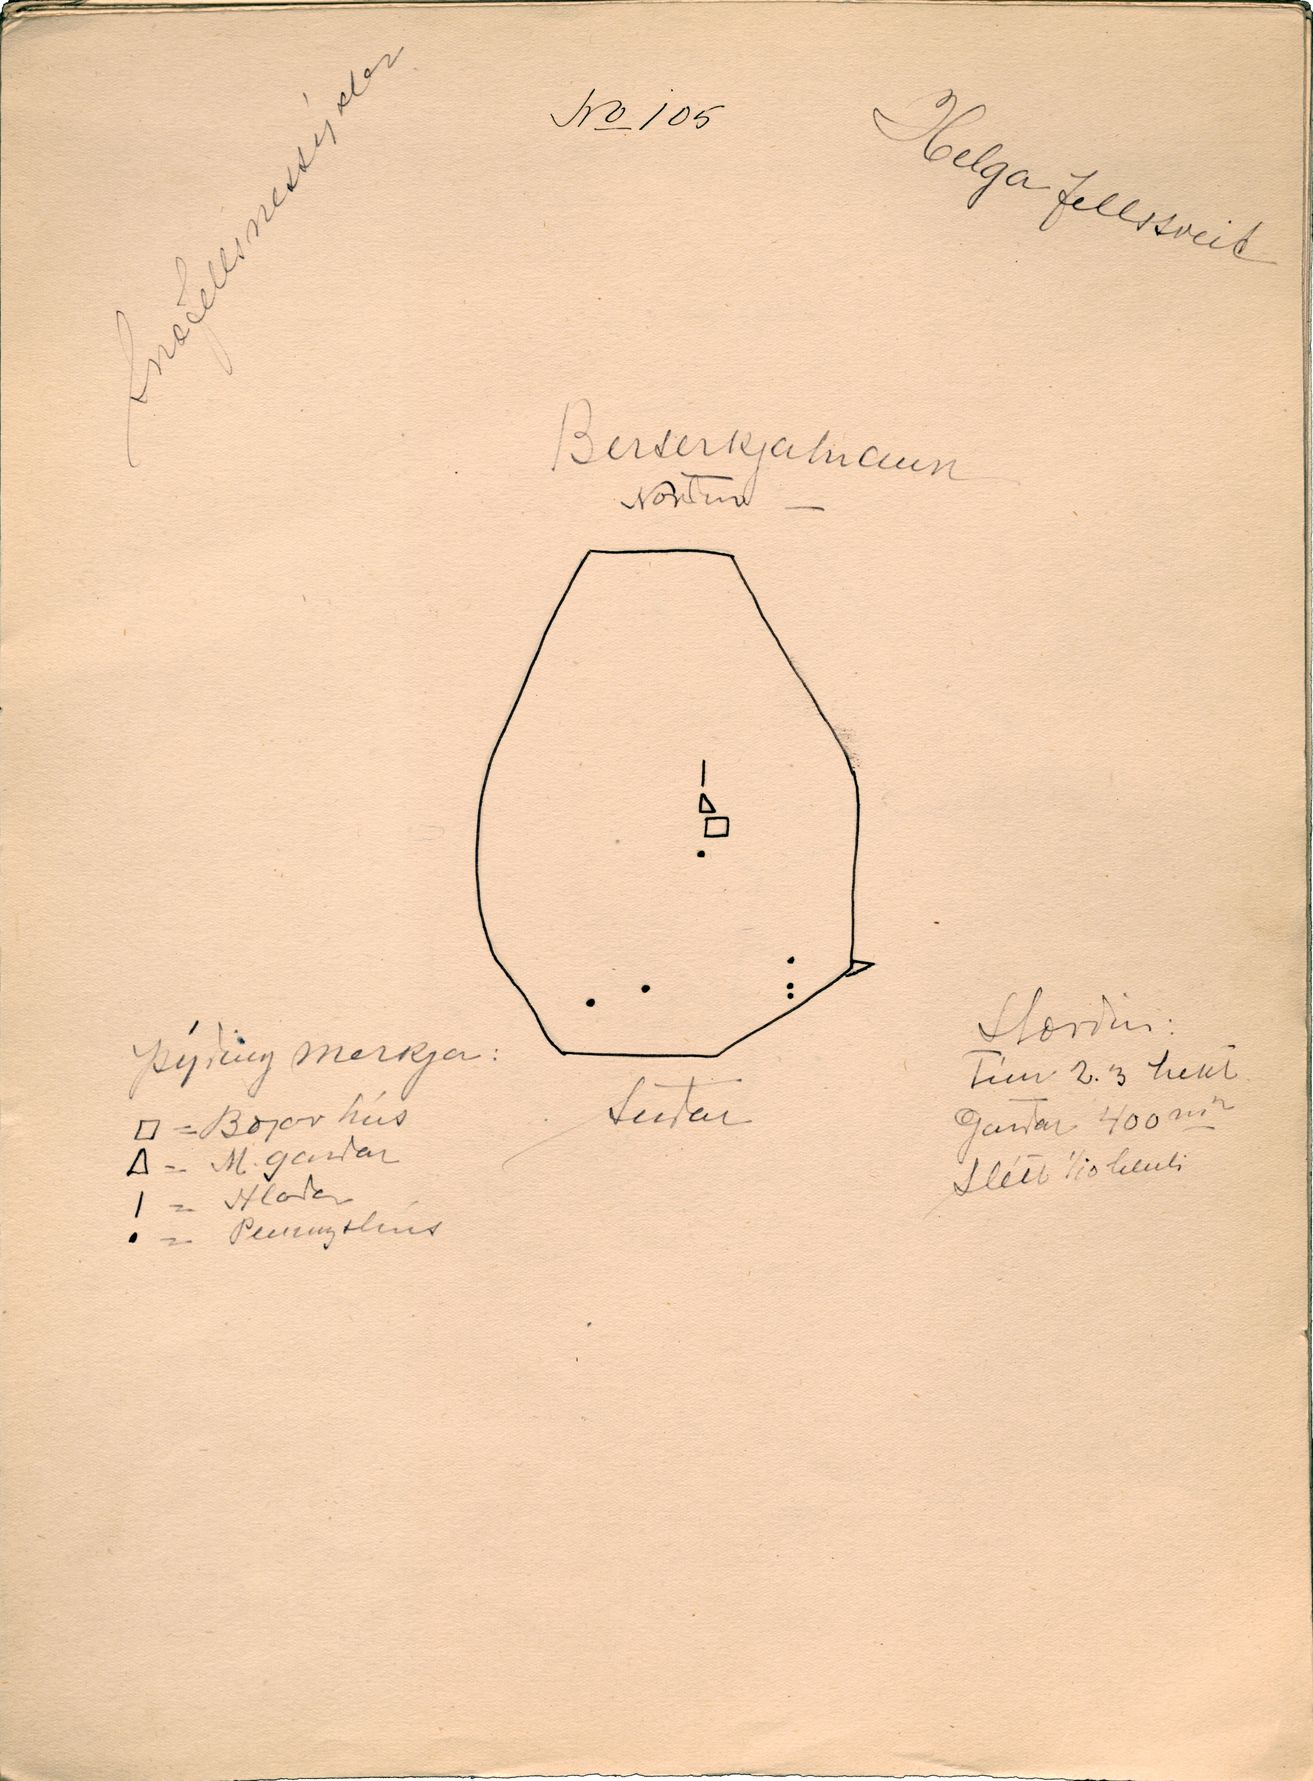 Snæfellsnessýsla
No 105
Helgafellssveit
Berserkjahraun
Norður
Suður
Þýðing merkja:
□ = Bæjarhús
Δ = M. garðar
| = Hlaða
• = Peningshús
Stærðin:
Tún 2.3 hekt
Garðar 400 m²
Slétt 1/10 hluti